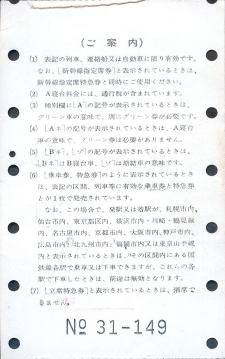 （ご案内）
(1) 表記の列車、連絡船又は自動車に限り有効です。
なお、〔新幹線指定席券〕と表示されているときは、
新幹線指定席特急券と同時にご使用ください。
(2) A寝台料金には、通行税が含まれています。
(3) 種別欄に〔A〕の記号が表示されているときは、
グリーン車の意味で、別にグリーン券が必要です。
(4) 〔Aネ〕の記号が表示されているときは、A寝台
車の意味で、グリーン券は必要ありません。
(5) 〔Bネ〕、〔ゾ〕の記号が表示されているときは、
〔Bネ〕はB寝台車、〔ゾ〕は増結車の意味です。
(6) 〔乗車券、特急券〕のように表示されているとき
は、表記の区間、列車等に有効な乗車券と特急券
とが1枚で発売されています。
なお、この場合で、発駅又は着駅が、札幌市内、
仙台市内、東京都区内、横浜市内・川崎・鶴見線
内、名古屋市内、京都市内、大阪市内、神戸市内、
広島市内、北九州市内、福岡市内又は東京山手線
内と表示されているときは、その区間内にある国
鉄線各駅で乗車又は下車できますが、これらの各
駅で下車したときは、前途は無効となります。
(7) 〔立席特急券〕と表示されているときは、着席で
きません。
№ 31-149